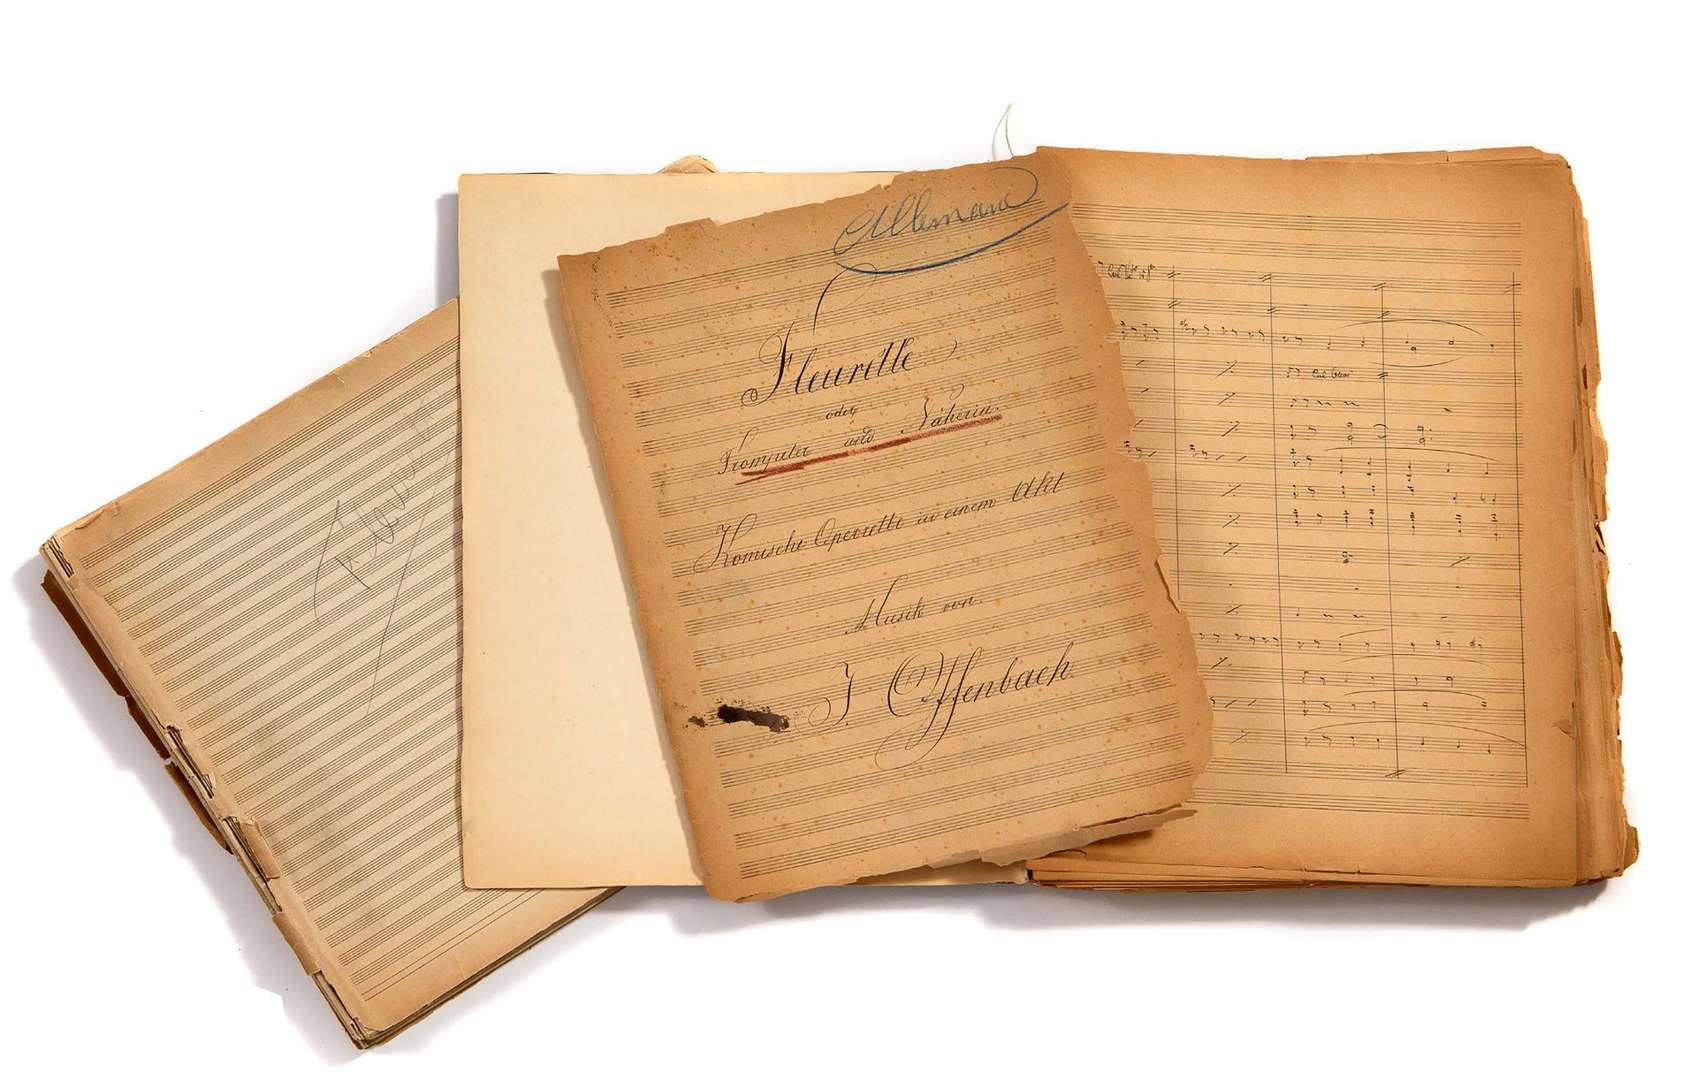 Allemand
Fleurette
oder
Trompeter und Näherin.
Komische Operette in einem Akt
Musik von.
J Offenbach